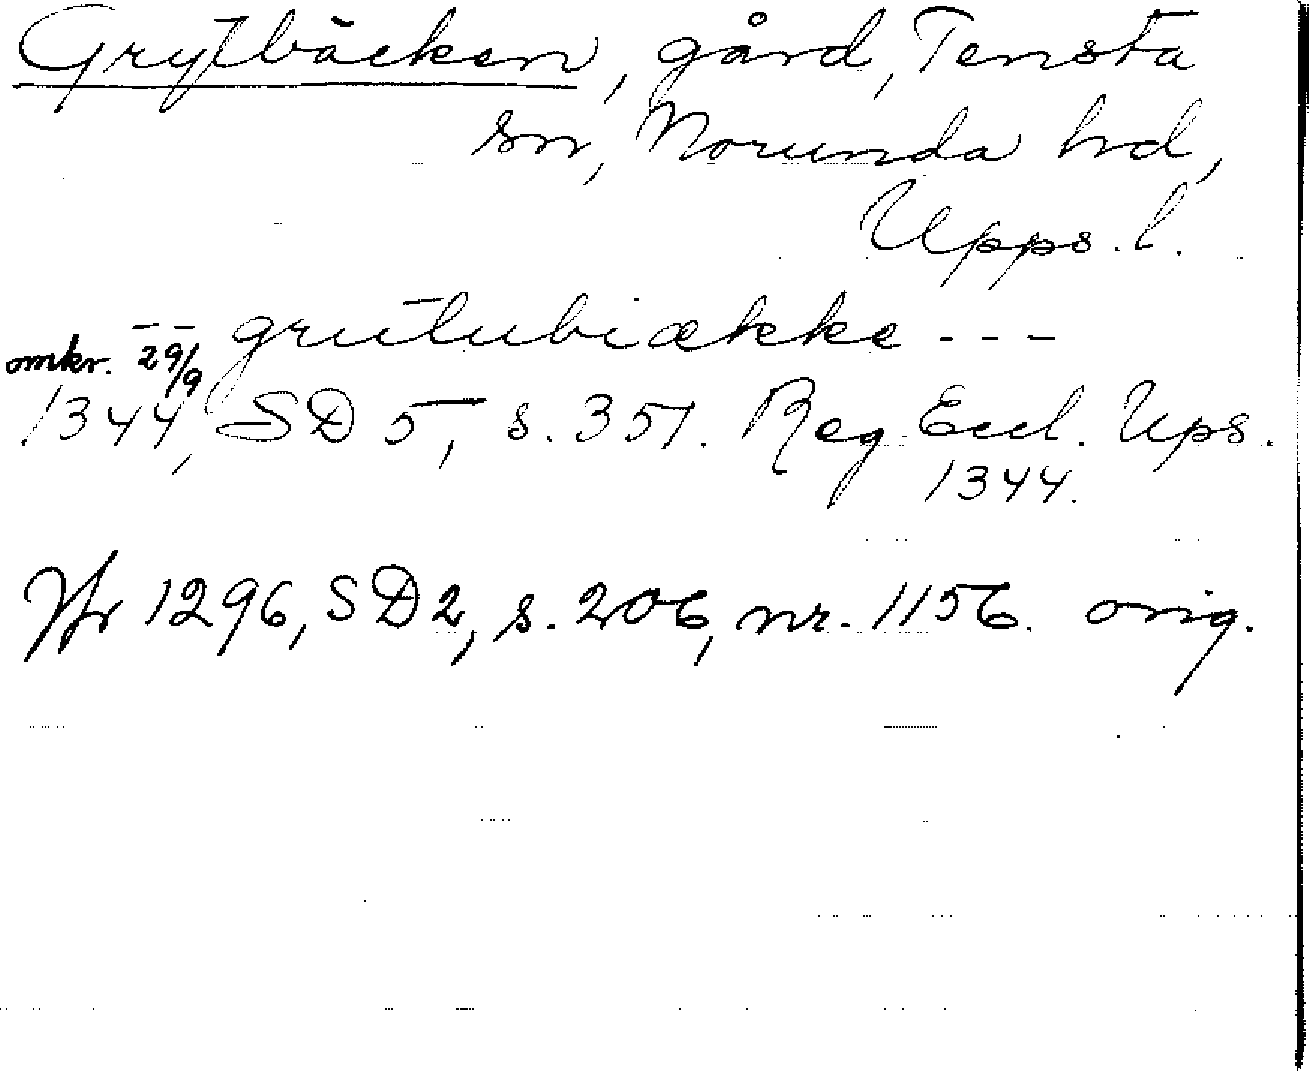 Grytbäcken, gård, Tensta
sn, Norunda hd,
Upps. l.
-- grutubiække ---
omkr. 29/9
1344, SD 5, s. 351. Reg. Eccl. Ups.
1344.
Jfr 1296, SD 2, s. 206, nr. 1156. orig.